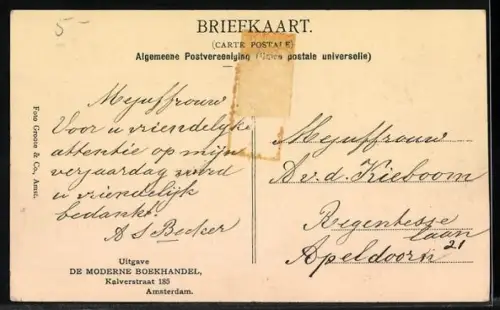 5-
BRIEFKAART.
(CARTE POSTALE)
Algemeene Postvereeniging (Union postale universelle)
Mejuffrouw
Voor u vriendelyke
attentie op mijn
verjaardag word
u vriendelijk
bedankt.
A S Becker
Foto Groote & Co., Amst.
Uitgave
DE MODERNE BOEKHANDEL,
Kalverstraat 185
Amsterdam.
Mejuffrouw
A v. d. Kieboom
Regentesse
laan 21
Apeldoorn